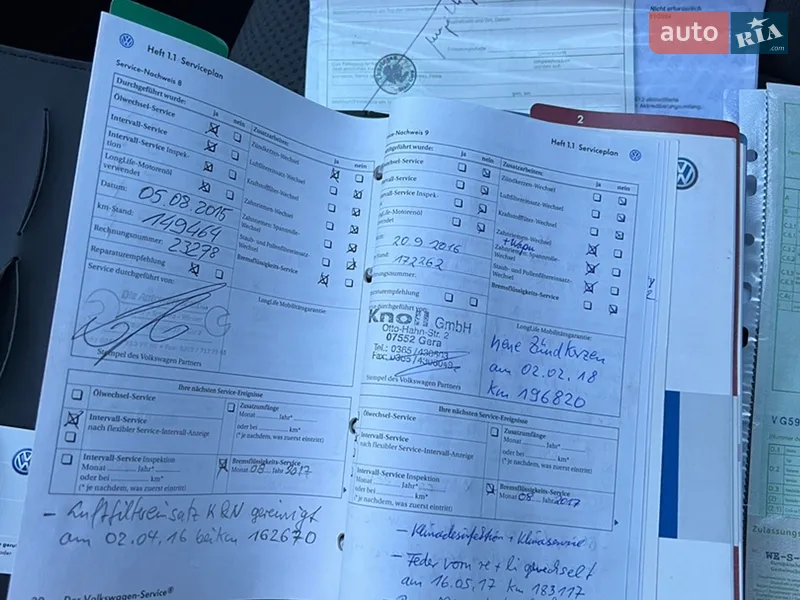 auto RIA .com
Nicht erforderlich
2
Heft 1.1 Serviceplan
Service-Nachweis 8
Durchgeführt wurde: ja nein
Ölwechsel-Service
Intervall-Service
Intervall-Service Inspek-
tion
LongLife-Motorenöl
verwendet
Datum: 05.08.2015
km-Stand: 149464
Rechnungsnummer: 23278
Reparaturempfehlung
Service durchgeführt von:
Zusatzarbeiten: ja nein
Zündkerzen-Wechsel
Luftfiltereinsatz-Wechsel
Kraftstofffilter-Wechsel
Zahnriemen-Wechsel
Zahnriemen, Spannrolle-
Wechsel
Staub- und Pollenfiltereinsatz-
Wechsel
Bremsflüssigkeits-Service
LongLife Mobilitätsgarantie:
Stempel des Volkswagen Partners
Ihre nächsten Service-Ereignisse
Ölwechsel-Service
Intervall-Service
nach flexibler Service-Intervall-Anzeige
Intervall-Service Inspektion
Monat Jahr*
oder bei km*
(* je nachdem, was zuerst eintritt)
Zusatzumfänge
Monat Jahr*
oder bei km*
(* je nachdem, was zuerst eintritt)
Bremsflüssigkeits-Service
Monat 08 Jahr 2017
- Luftfiltereinsatz K&N gereinigt
am 02.04.16 bei km 162670
Der Volkswagen-Service®
Heft 1.1 Serviceplan
ice-Nachweis 9
geführt wurde: ja nein
chsel-Service
vall-Service
vall-Service Inspek-
ife-Motorenöl
ndet
20.9.2016
172262
ngsnummer:
turempfehlung
durchgeführt
Knoll GmbH
Otto-Hahn-Str. 2
07552 Gera
Tel.: 0365
Fax: 0365
Stempel des Volkswagen Partners
Zusatzarbeiten: ja nein
Zündkerzen-Wechsel
Luftfiltereinsatz-Wechsel
Kraftstofffilter-Wechsel
Zahnriemen-Wechsel + Wapu
Zahnriemen, Spannrolle-
Wechsel
Staub- und Pollenfiltereinsatz-
Wechsel
Bremsflüssigkeits-Service
LongLife Mobilitätsgarantie:
neue Zündkerzen
am 02.02.18
km 196820
Ihre nächsten Service-Ereignisse
Ölwechsel-Service
Intervall-Service
nach flexibler Service-Intervall-Anzeige
Intervall-Service Inspektion
Monat Jahr*
oder bei km*
(* je nachdem, was zuerst eintritt)
Zusatzumfänge
Monat Jahr*
oder bei km*
(* je nachdem, was zuerst eintritt)
Bremsflüssigkeits-Service
Monat 08 Jahr 2017
- Klimadesinfektion + Klimaservice
- Feder vorn re + li gewechselt
am 16.05.17 km 183117
VG59
Zulassungs
WE-S-